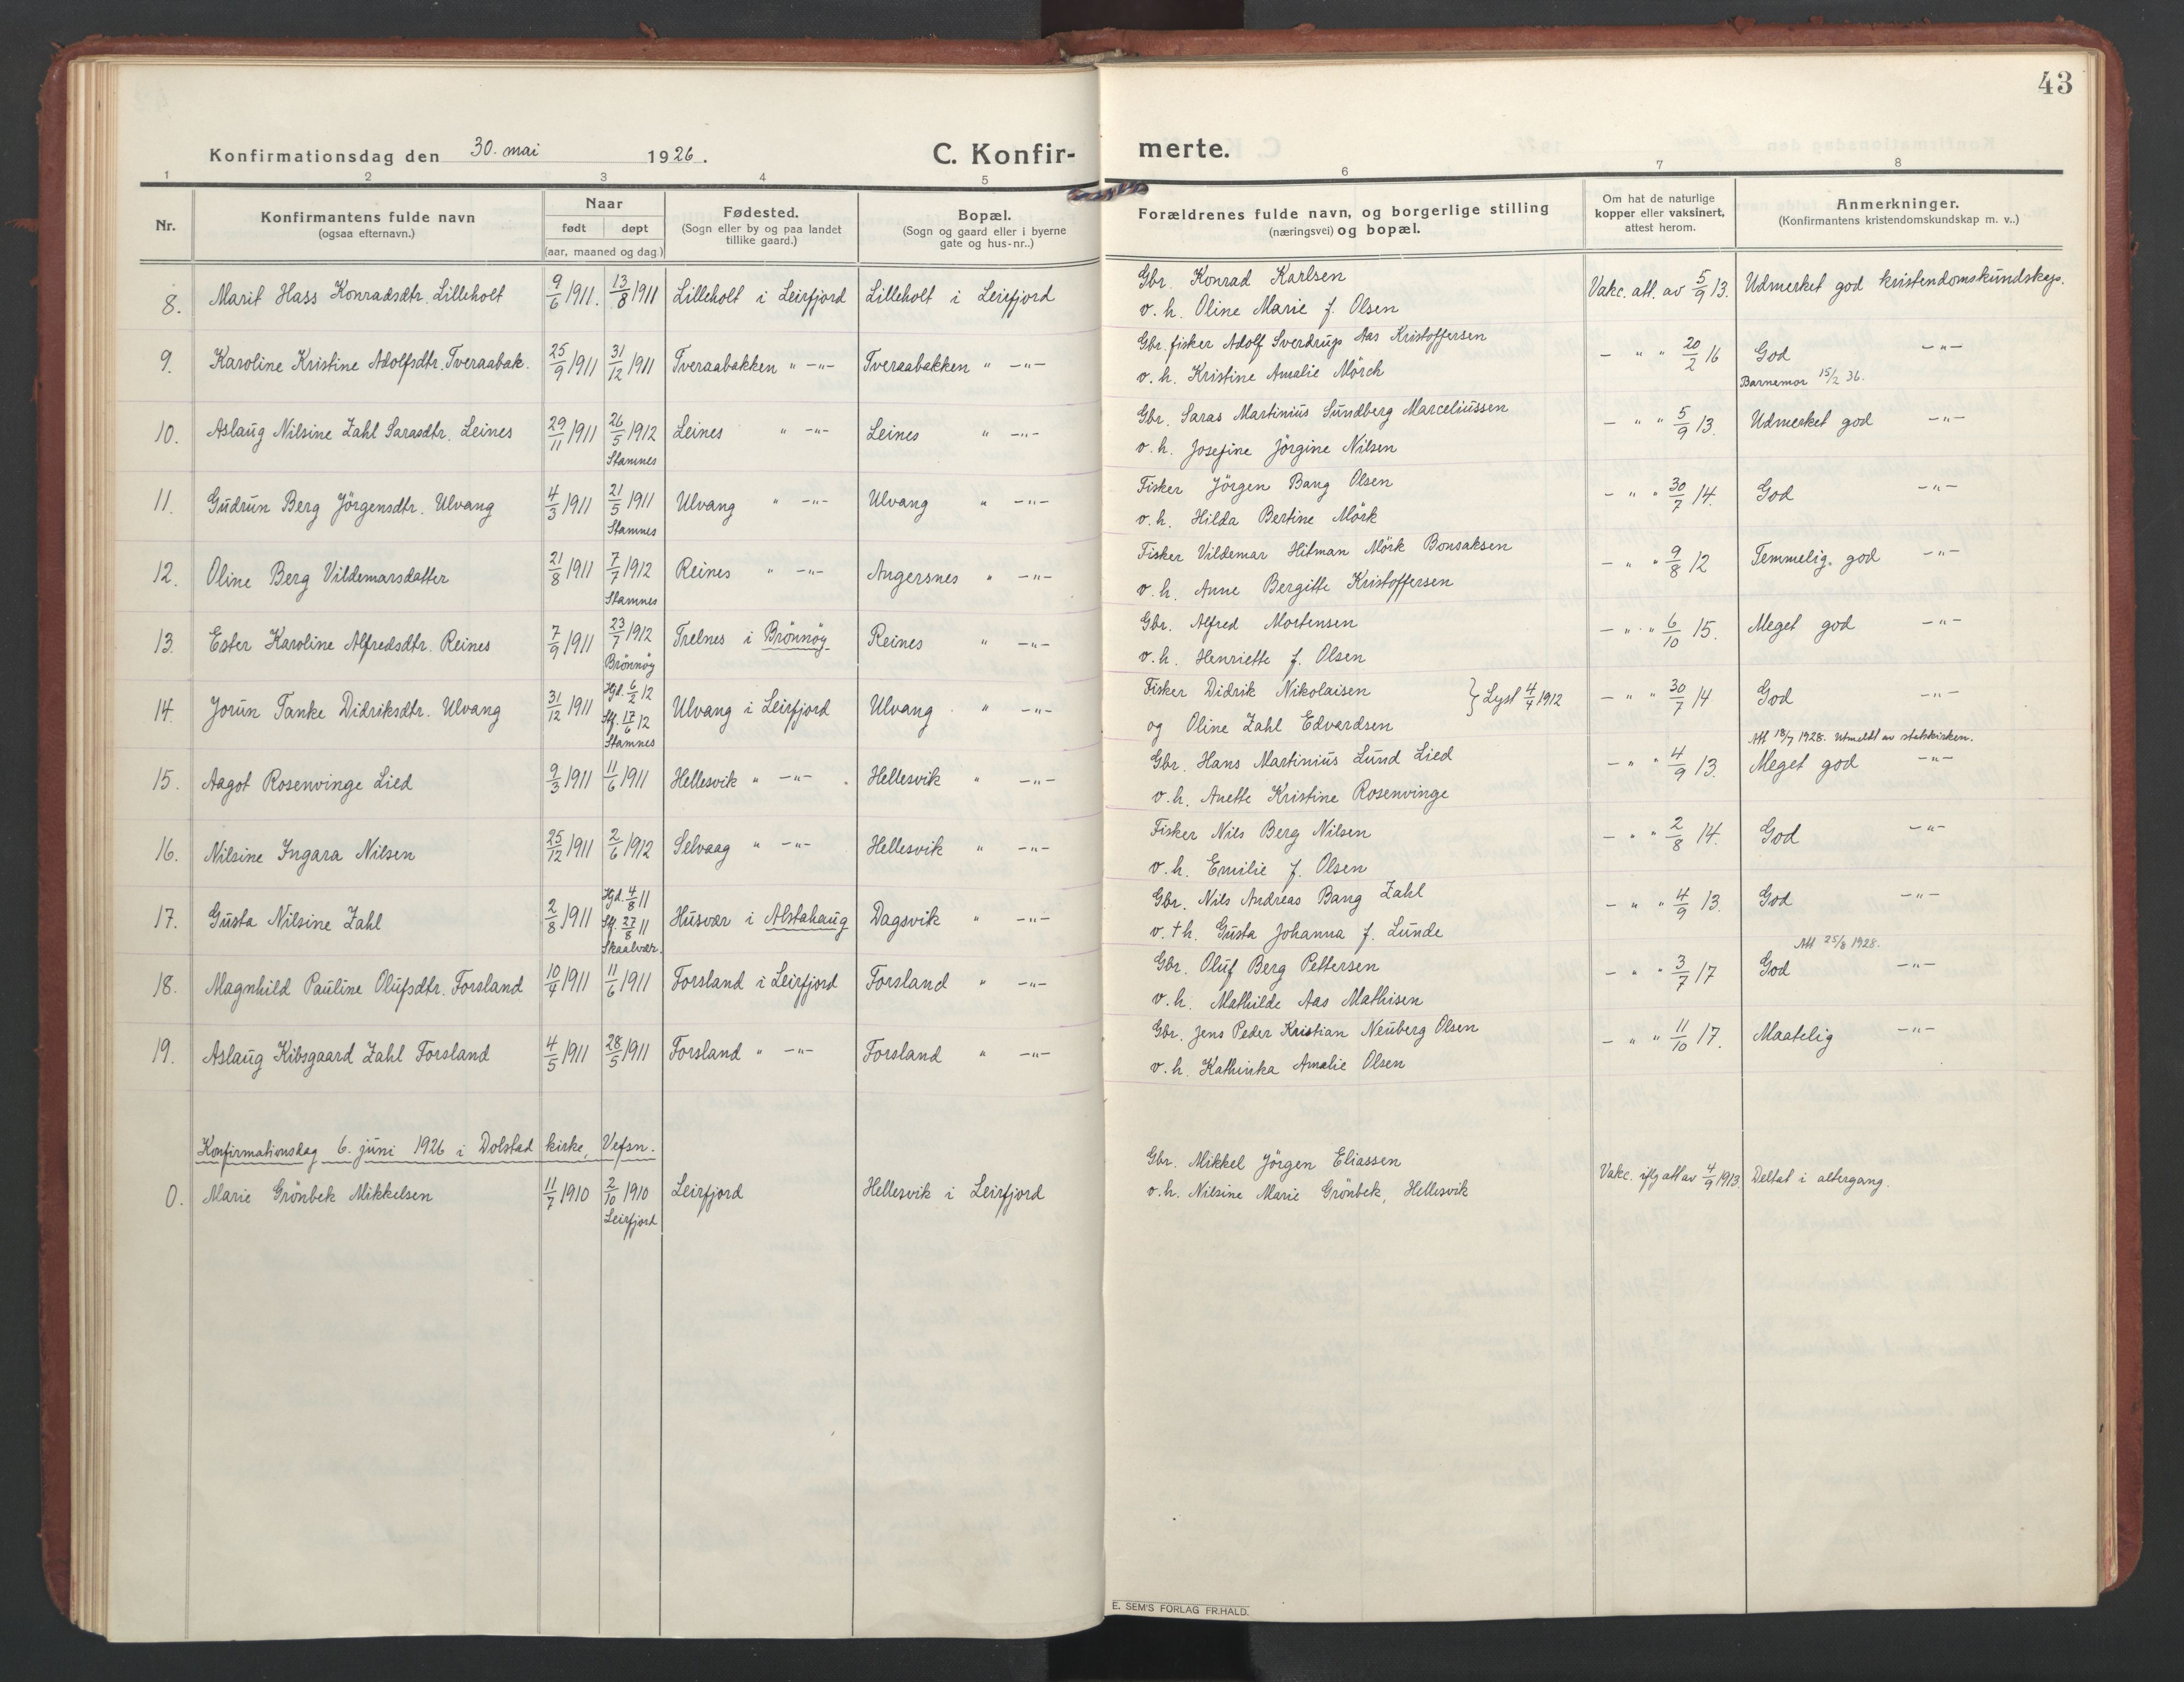 43
Konfirmationsdag den 30. mai 1926. C. Konfir- merte.
1 2 3 4 5 6 7 8
Nr.
Konfirmantens fulde navn
(ogsaa efternavn.)
Naar
født døpt
(aar, maaned og dag)
Fødested.
(Sogn eller by og paa landet
tillike gaard.)
Bopæl.
(Sogn og gaard eller i byerne
gate og hus-nr..)
Forældrenes fulde navn, og borgerlige stilling
(næringsvei) og bopæl.
Om hat de naturlige
kopper eller vaksinert,
attest herom.
Anmerkninger.
(Konfirmantens kristendomskundskap m. v..)
8. Marit Hass Konradsdtr. Lilleholt 9/6 1911. 13/8 1911 Lilleholt i Leirfjord Lilleholt i Leirfjord Gbr. Konrad Karlsen Vakc. att. av 5/9 13. Udmerket god kristendomskundskap.
v. h. Oline Marie f. Olsen
9. Karoline Kristine Adolfsdtr. Tveraabak. 25/9 1911 31/12 1911 Tveraabakken " -"- Tveraabakken " -"- Gbr. fisker Adolf Sverdrup Aas Kristoffersen - " " 20/2 16 God -"-
v. h. Kristine Amalie Mörch Barnemor 15/2 36.
10. Aslaug Nilsine Zahl Sarasdtr. Leines 29/11 1911 26/5 1912 Leines " -"- Leines " -"- Gbr. Saras Martinius Sundberg Marceliussen - " " 5/9 13. Udmerket god -"-
Stamnes v. h. Josefine Jörgine Nilsen
11. Gudrun Berg Jörgensdtr. Ulvang 4/3 1911 21/5 1911 Ulvang " -"- Ulvang " -"- Fisker Jörgen Bang Olsen - " " 30/7 14. God -"-
Stamnes v. h. Hilda Bertine Mörk
12. Oline Berg Vildemarsdatter 21/8 1911 7/7 1912 Reines " -"- Angersnes " -"- Fisker Vildemar Hitman Mörk Bonsaksen - " " 9/8 12 Temmelig god -"-
Stamnes v. h. Anne Bergitte Kristoffersen
13. Ester Karoline Alfredsdtr. Reines 7/9 1911 23/7 1912 Trelnes i Brönnöy Reines " -"- Gbr. Alfred Mortensen - " " 6/10 15. Meget god -"-
Brönnöy v. h. Henriette f. Olsen
14. Jorun Tanke Didriksdtr. Ulvang 31/12 1911 Hjd. 6/2 12 Ulvang i Leirfjord Ulvang " -"- Fisker Didrik Nikolaisen } Lyst 4/4 1912 - " " 30/7 14 God -"-
Stf. 17/6 12
Stamnes og Oline Zahl Edvardsen
Att 18/7 1928. Utmeldt av statskirken.
15. Aagot Rosenvinge Lied 9/3 1911 11/6 1911 Hellesvik " -"- Hellesvik " -"- Gbr. Hans Martinius Lund Lied - " " 4/9 13. Meget god -"-
v. h. Anette Kristine Rosenvinge
16. Nilsine Ingara Nilsen 25/12 1911 2/6 1912 Selvaag " -"- Hellesvik " -"- Fisker Nils Berg Nilsen - " " 2/8 14. God -"-
v. h. Emilie f. Olsen
17. Gusta Nilsine Zahl 2/8 1911 Hjd. 4/8 11 Husvær i Alstahaug Dagsvik " -"- Gbr. Nils Andreas Bang Zahl - " " 4/9 13. God -"-
Stf. 27/8 11
Skaalvær. v. †h. Gusta Johanna f. Lunde
Att 25/8 1928.
18. Magnhild Pauline Olufsdtr. Forsland 10/4 1911 11/6 1911 Forsland i Leirfjord Forsland " -"- Gbr. Oluf Berg Pettersen - " " 3/7 17 God -"-
v. h. Mathilde Aas Mathisen
19. Aslaug Kibsgaard Zahl Forsland 4/5 1911 28/5 1911 Forsland " -"- Forsland " -"- Gbr. Jens Peder Kristian Neuberg Olsen - " " 11/10 17. Maatelig -"-
v. h. Kathinka Amalie Olsen
Konfirmationsdag 6. juni 1926 i Dolstad kirke, Vefsn.
0. Marie Grönbek Mikkelsen 11/7 1910 2/10 1910 Leirfjord Hellesvik i Leirfjord Gbr. Mikkel Jörgen Eliassen Vakc. iflg att av 4/9 1913. Deltat i altergang.
Leirfjord v. h. Nilsine Marie Grönbek, Hellesvik
E. SEM'S FORLAG FR.HALD.